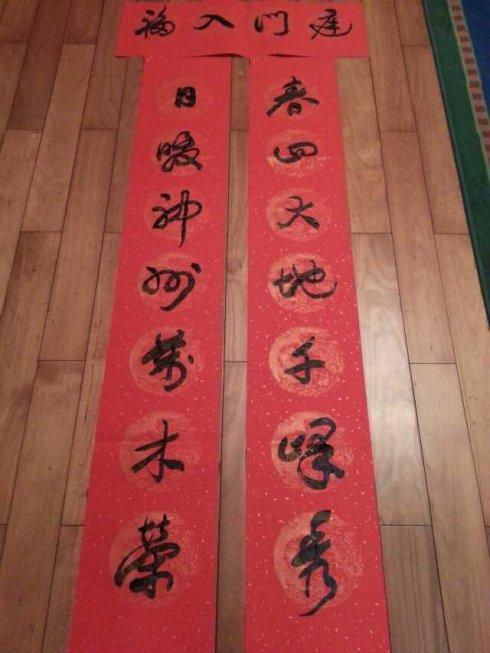 庭門入福
春回大地千峰秀
日暖神州萬木榮